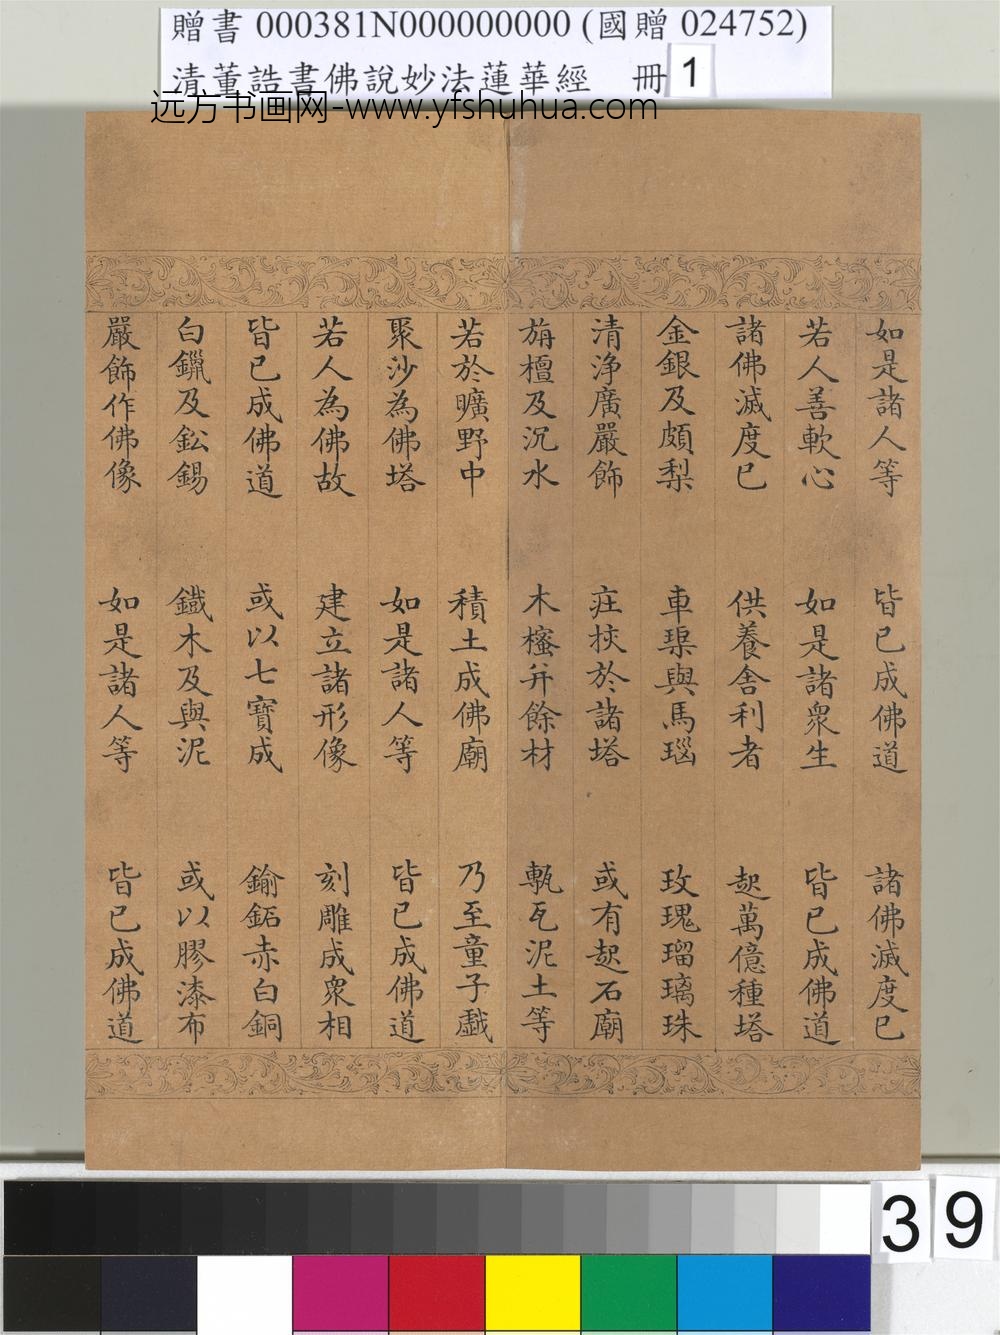 贈書 000381N000000000 (國贈 024752)
清董誥書佛說妙法蓮華經 冊 1
远方书画网-www.yfshuhua.com
如是諸人等 皆已成佛道 諸佛滅度已
若人善軟心 如是諸眾生 皆已成佛道
諸佛滅度已 供養舍利者 起萬億種塔
金銀及頗梨 車璖與馬瑙 玫瑰瑠璃珠
清淨廣嚴飾 莊挍於諸塔 或有起石廟
旃檀及沉水 木櫁并餘材 甎瓦泥土等
若於曠野中 積土成佛廟 乃至童子戲
聚沙為佛塔 如是諸人等 皆已成佛道
若人為佛故 建立諸形像 刻雕成眾相
皆已成佛道 或以七寶成 鍮鉐赤白銅
白鑞及鈆錫 鐵木及與泥 或以膠漆布
嚴飾作佛像 如是諸人等 皆已成佛道
39